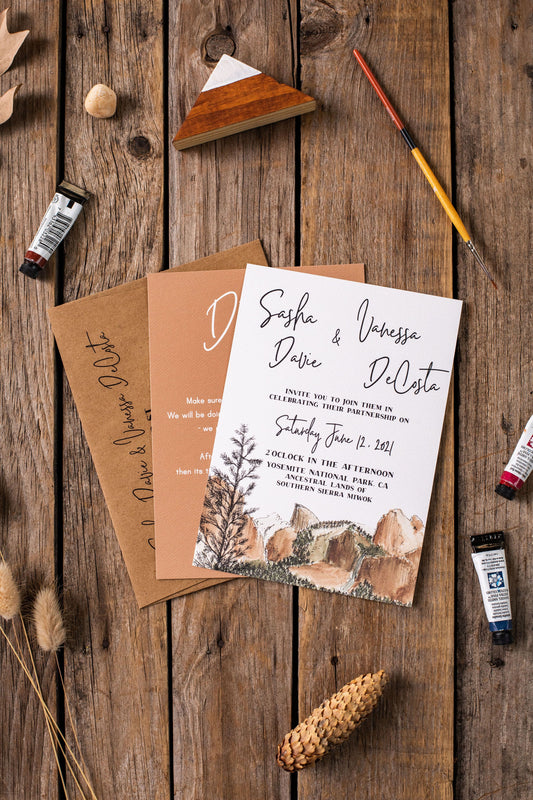 Sasha & Vanessa
Davie DeCosta
INVITE YOU TO JOIN THEM IN
CELEBRATING THEIR PARTNERSHIP ON
Saturday June 12, 2021
2 O'CLOCK IN THE AFTERNOON
YOSEMITE NATIONAL PARK, CA
ANCESTRAL LANDS OF
SOUTHERN SIERRA MIWOK
Make sure
We will be doi
- we
Af
then its t
Davie & Vanessa DeCosta